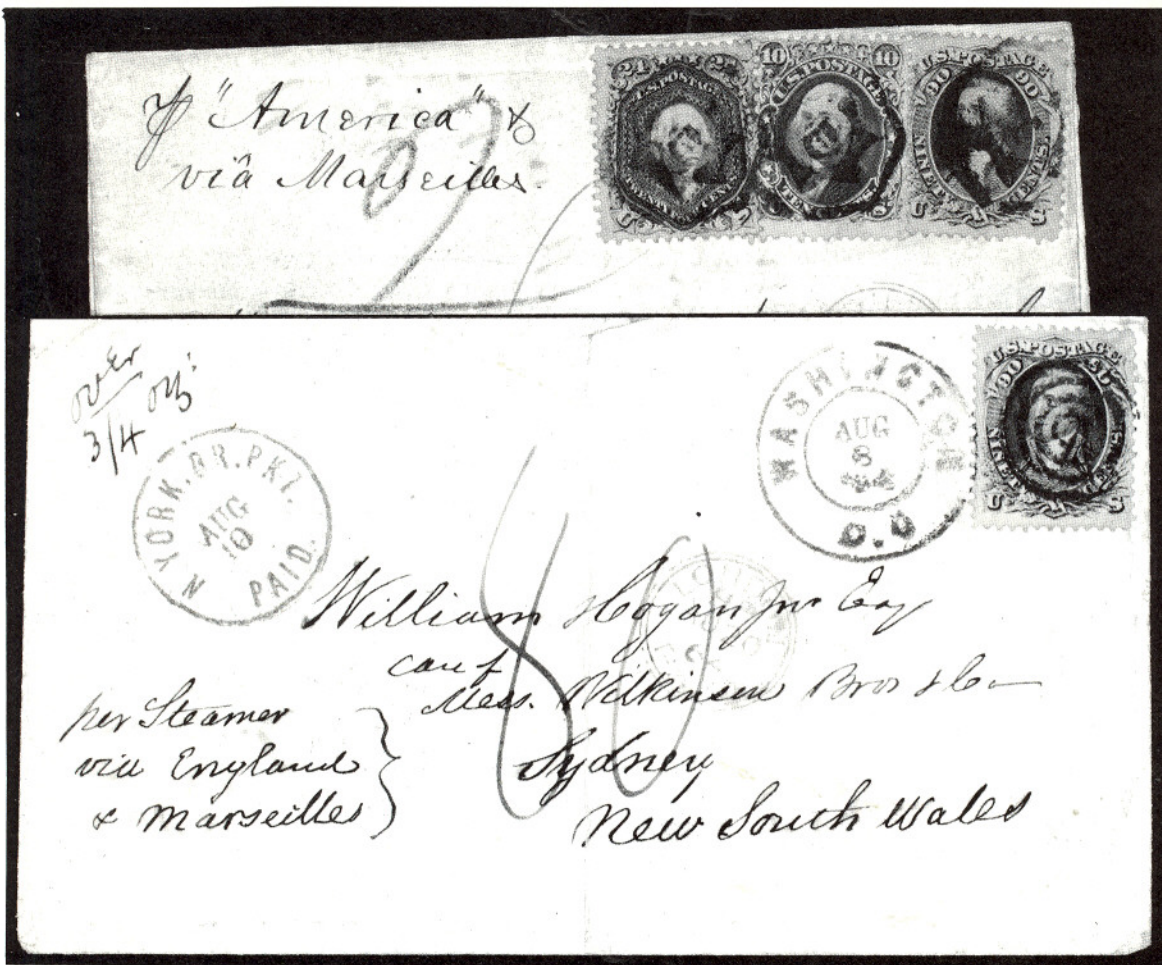 p "America" &
via Marseilles.
24 24
U.S. POSTAGE
U S
10 10
U.S. POSTAGE
TEN CENTS
U S
U.S. POSTAGE
90 90
NINETY CENTS
U S
over
3/4 oz:
N YORK. BR. PKT.
AUG
10
PAID.
WASHINGTON
AUG
8
D.C
U.S. POSTAGE
90 90
NINETY CENTS
U S
80
William Hogan Jnr Esq
care of
Mess. Wilkinson Bros & Co
Sydney
New South Wales
per Steamer
via England
& Marseilles